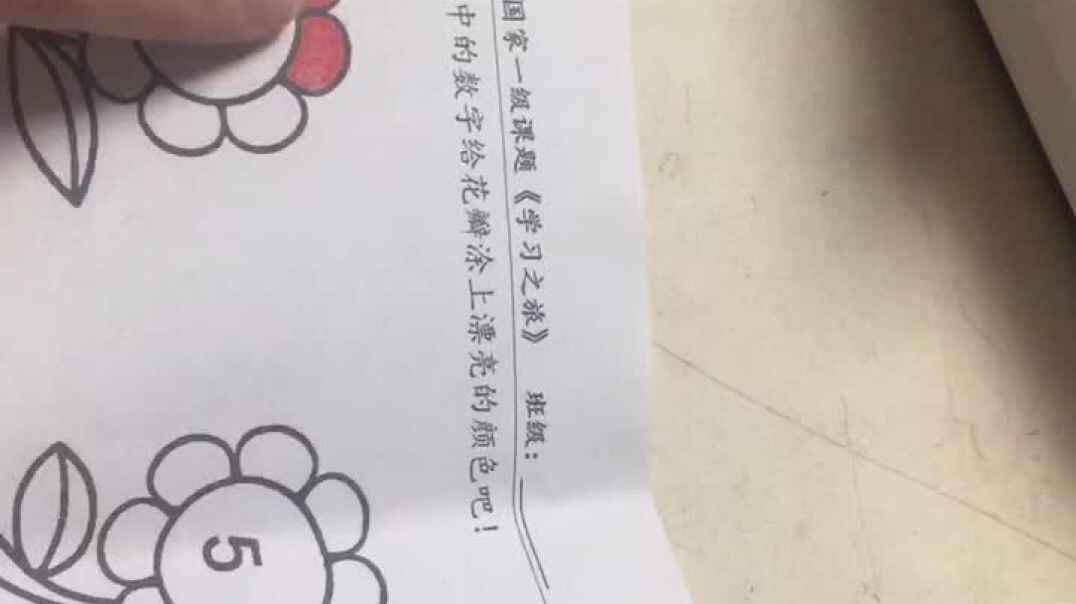 国家一级课题《学习之旅》 班级：
中的数字给花瓣涂上漂亮的颜色吧！
5